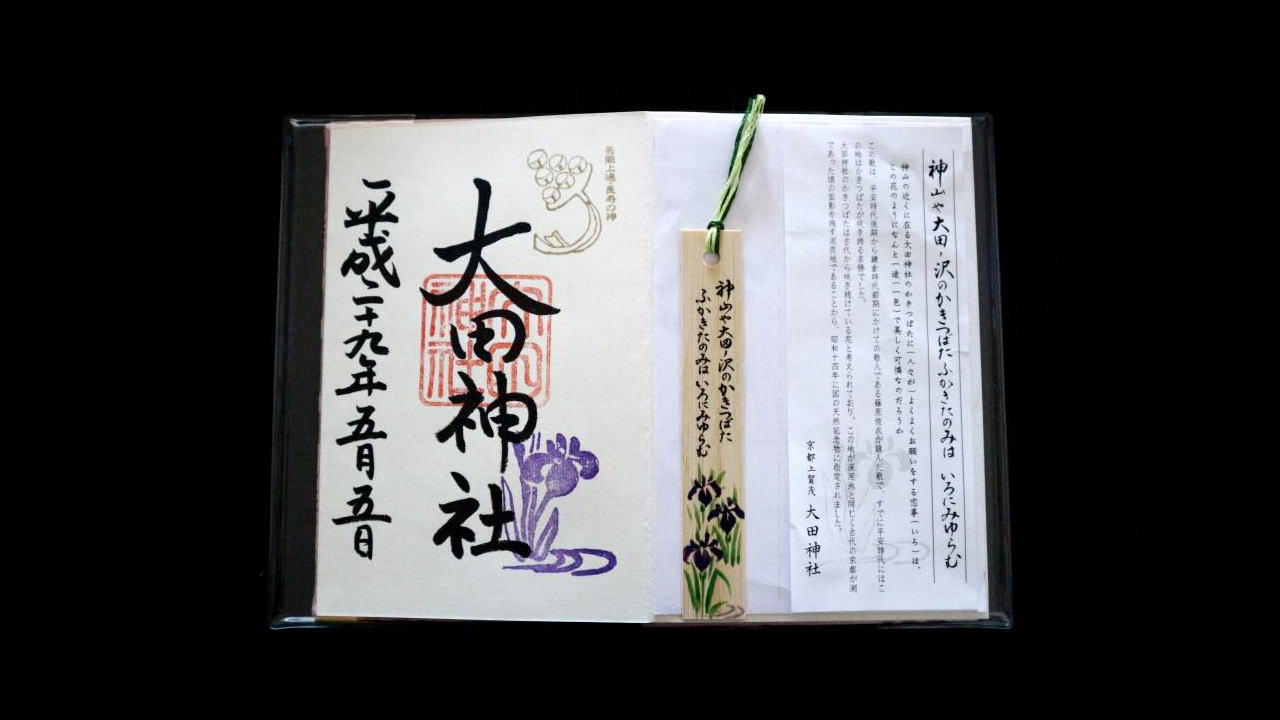 神山や大田ノ沢のかきつばたふかきたのみは いろにみゆらむ
神山の近くに在る大田神社のかきつばたに(人々が)よくよくお願いをする恋事(いろ)は、
この花のようになんと(一途(一色)で美しく可憐なのだろうか
この歌は、平安時代後期から鎌倉時代前期にかけての歌人である藤原俊成が詠んだ歌で、すでに平安時代にはこ
の地はかきつばたが咲き誇る名勝でした。
大田神社のかきつばたは古代から咲き続けている花と考えられており、この地が深泥池と同じく古代の京都が湖
であった頃の面影を残す泥炭地であることから、昭和十四年に国の天然記念物に指定されました。
京都上賀茂 大田神社
神山や大田ノ沢のかきつばた
ふかきたのみは いろにみゆらむ
芸能上達・長寿の神
大田神社
平成二十九年五月五日